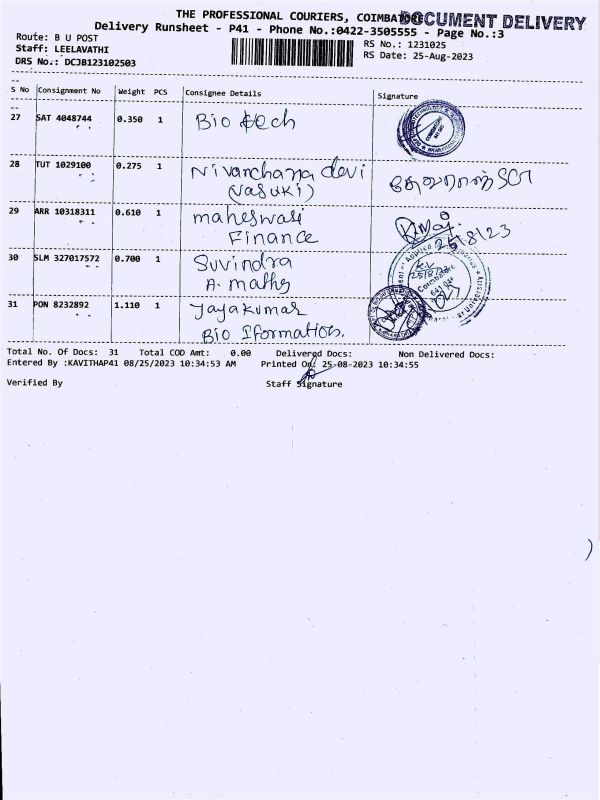 THE PROFESSIONAL COURIERS, COIMBATORE
DOCUMENT DELIVERY
Delivery Runsheet - P41 - Phone No.:0422-3505555 - Page No.:3
Route: B U POST
RS No.: 1231025
Staff: LEELAVATHI
RS Date: 25-Aug-2023
DRS No.: DCJB123102503
S No Consignment No Weight PCS Consignee Details Signature
27 SAT 4048744 0.350 1 Bio tech
28 TUT 1029100 0.275 1 Nivanchana devi
(vasuki)
29 ARR 10318311 0.610 1 maheswari
Finance
25/8/23
30 SLM 327017572 0.700 1 Suvindra
A. maths
31 PON 8232892 1.110 1 Jayakumar
Bio Iformation.
Total No. Of Docs: 31 Total COD Amt: 0.00 Delivered Docs: Non Delivered Docs:
Entered By :KAVITHAP41 08/25/2023 10:34:53 AM Printed On: 25-08-2023 10:34:55
Verified By Staff Signature